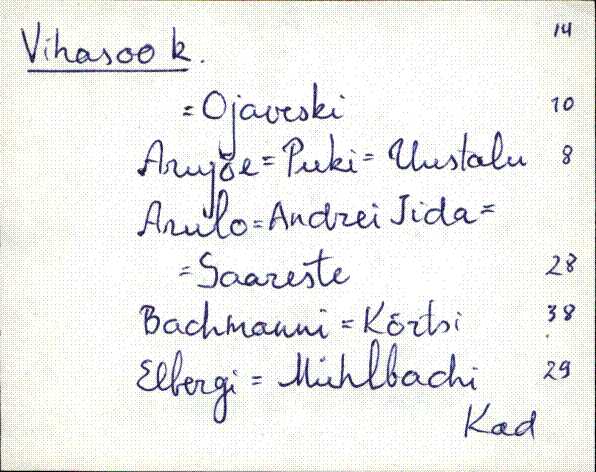 14
Vihasoo k.
= Ojaveski 10
Arujõe = Puki = Uustalu 8
Arulo = Andrei Jida =
= Saareste 28
Bachmanni = Kõrtsi 38
Elbergi = Mühlbachi 29
Kad